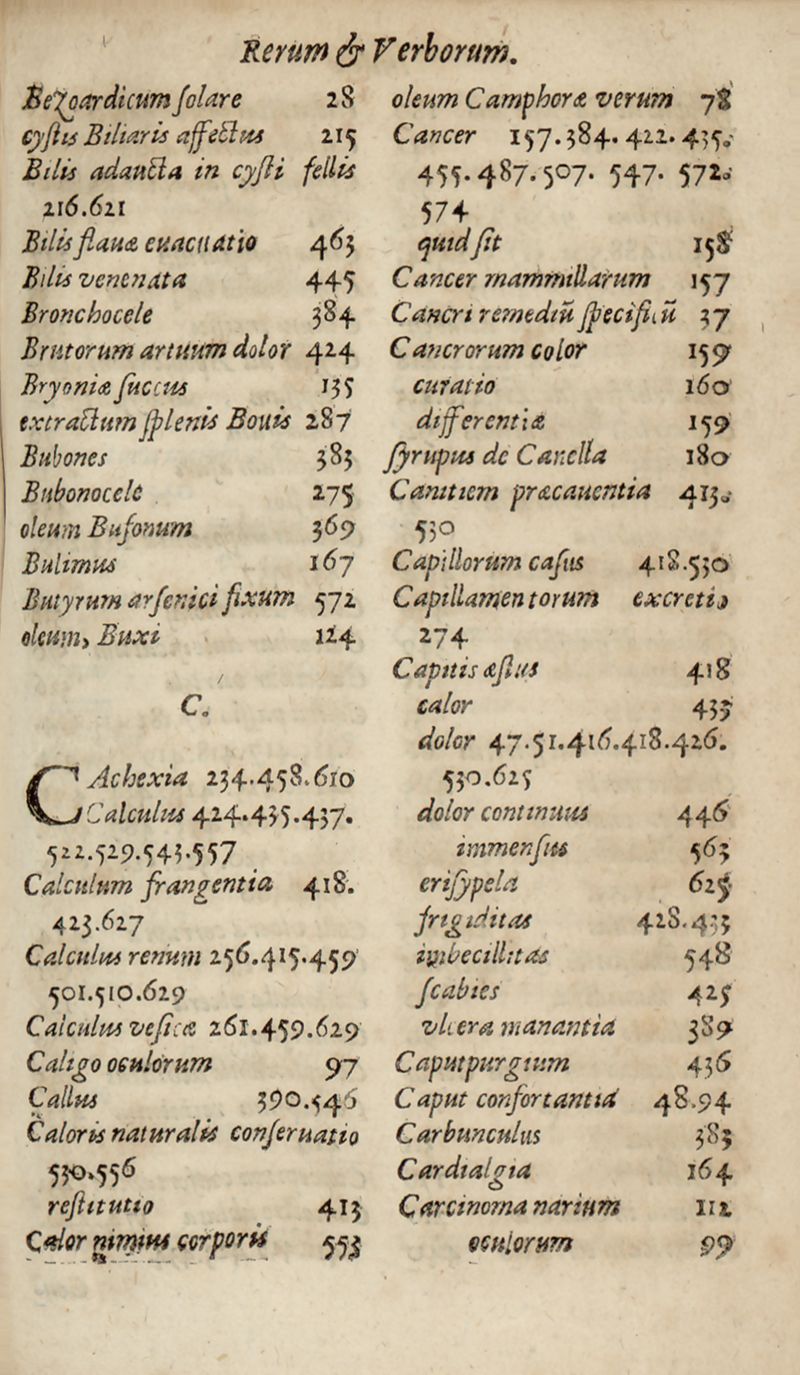 Rerum & Verborum.
Bezoardicum solare 28
cystis Biliaris affectus 215
Bilis adaucta in cysti fellis
216.621
Bilis flauæ euacuatio 463
Bilis venenata 445
Bronchocele 384
Brutorum artuum dolor 424
Bryoniæ succus 135
extractum splenis Bouis 287
Bubones 383
Bubonocele 275
oleum Bufonum 369
Bulimus 167
Butyrum arsenici fixum 572
oleum, Buxi 114
C.
CAchexia 234.458.610
Calculus 424.435.437.
522.529.543.557
Calculum frangentia 418.
423.627
Calculus renum 256.415.459
501.510.629
Calculus vesicæ 261.459.629
Caligo oculorum 97
Callus 390.546
Caloris naturalis conseruatio
530.556
restitutio 413
Calor nimius corporis 553
oleum Camphoræ verum 78
Cancer 157.384.422.435.
455.487.507. 547. 572.
574
quid sit 158
Cancer mammillarum 157
Cancri remediū specificū 37
Cancrorum color 159
curatio 160
differentiæ 159
syrupus de Canella 180
Canitiem præcauentia 413.
530
Capillorum casus 418.530
Capillamentorum excretio
274
Capitis æstus 418
calor 435
dolor 47.51.416.418.426.
530.625
dolor continuus 446
immensus 563
erisypela 625
frigiditas 428.433
imbecillitas 548
scabies 425
vlcera manantia 389
Caputpurgium 436
Caput confortantia 48.94
Carbunculus 383
Cardialgia 164
Carcinoma narium 112
oculorum 99